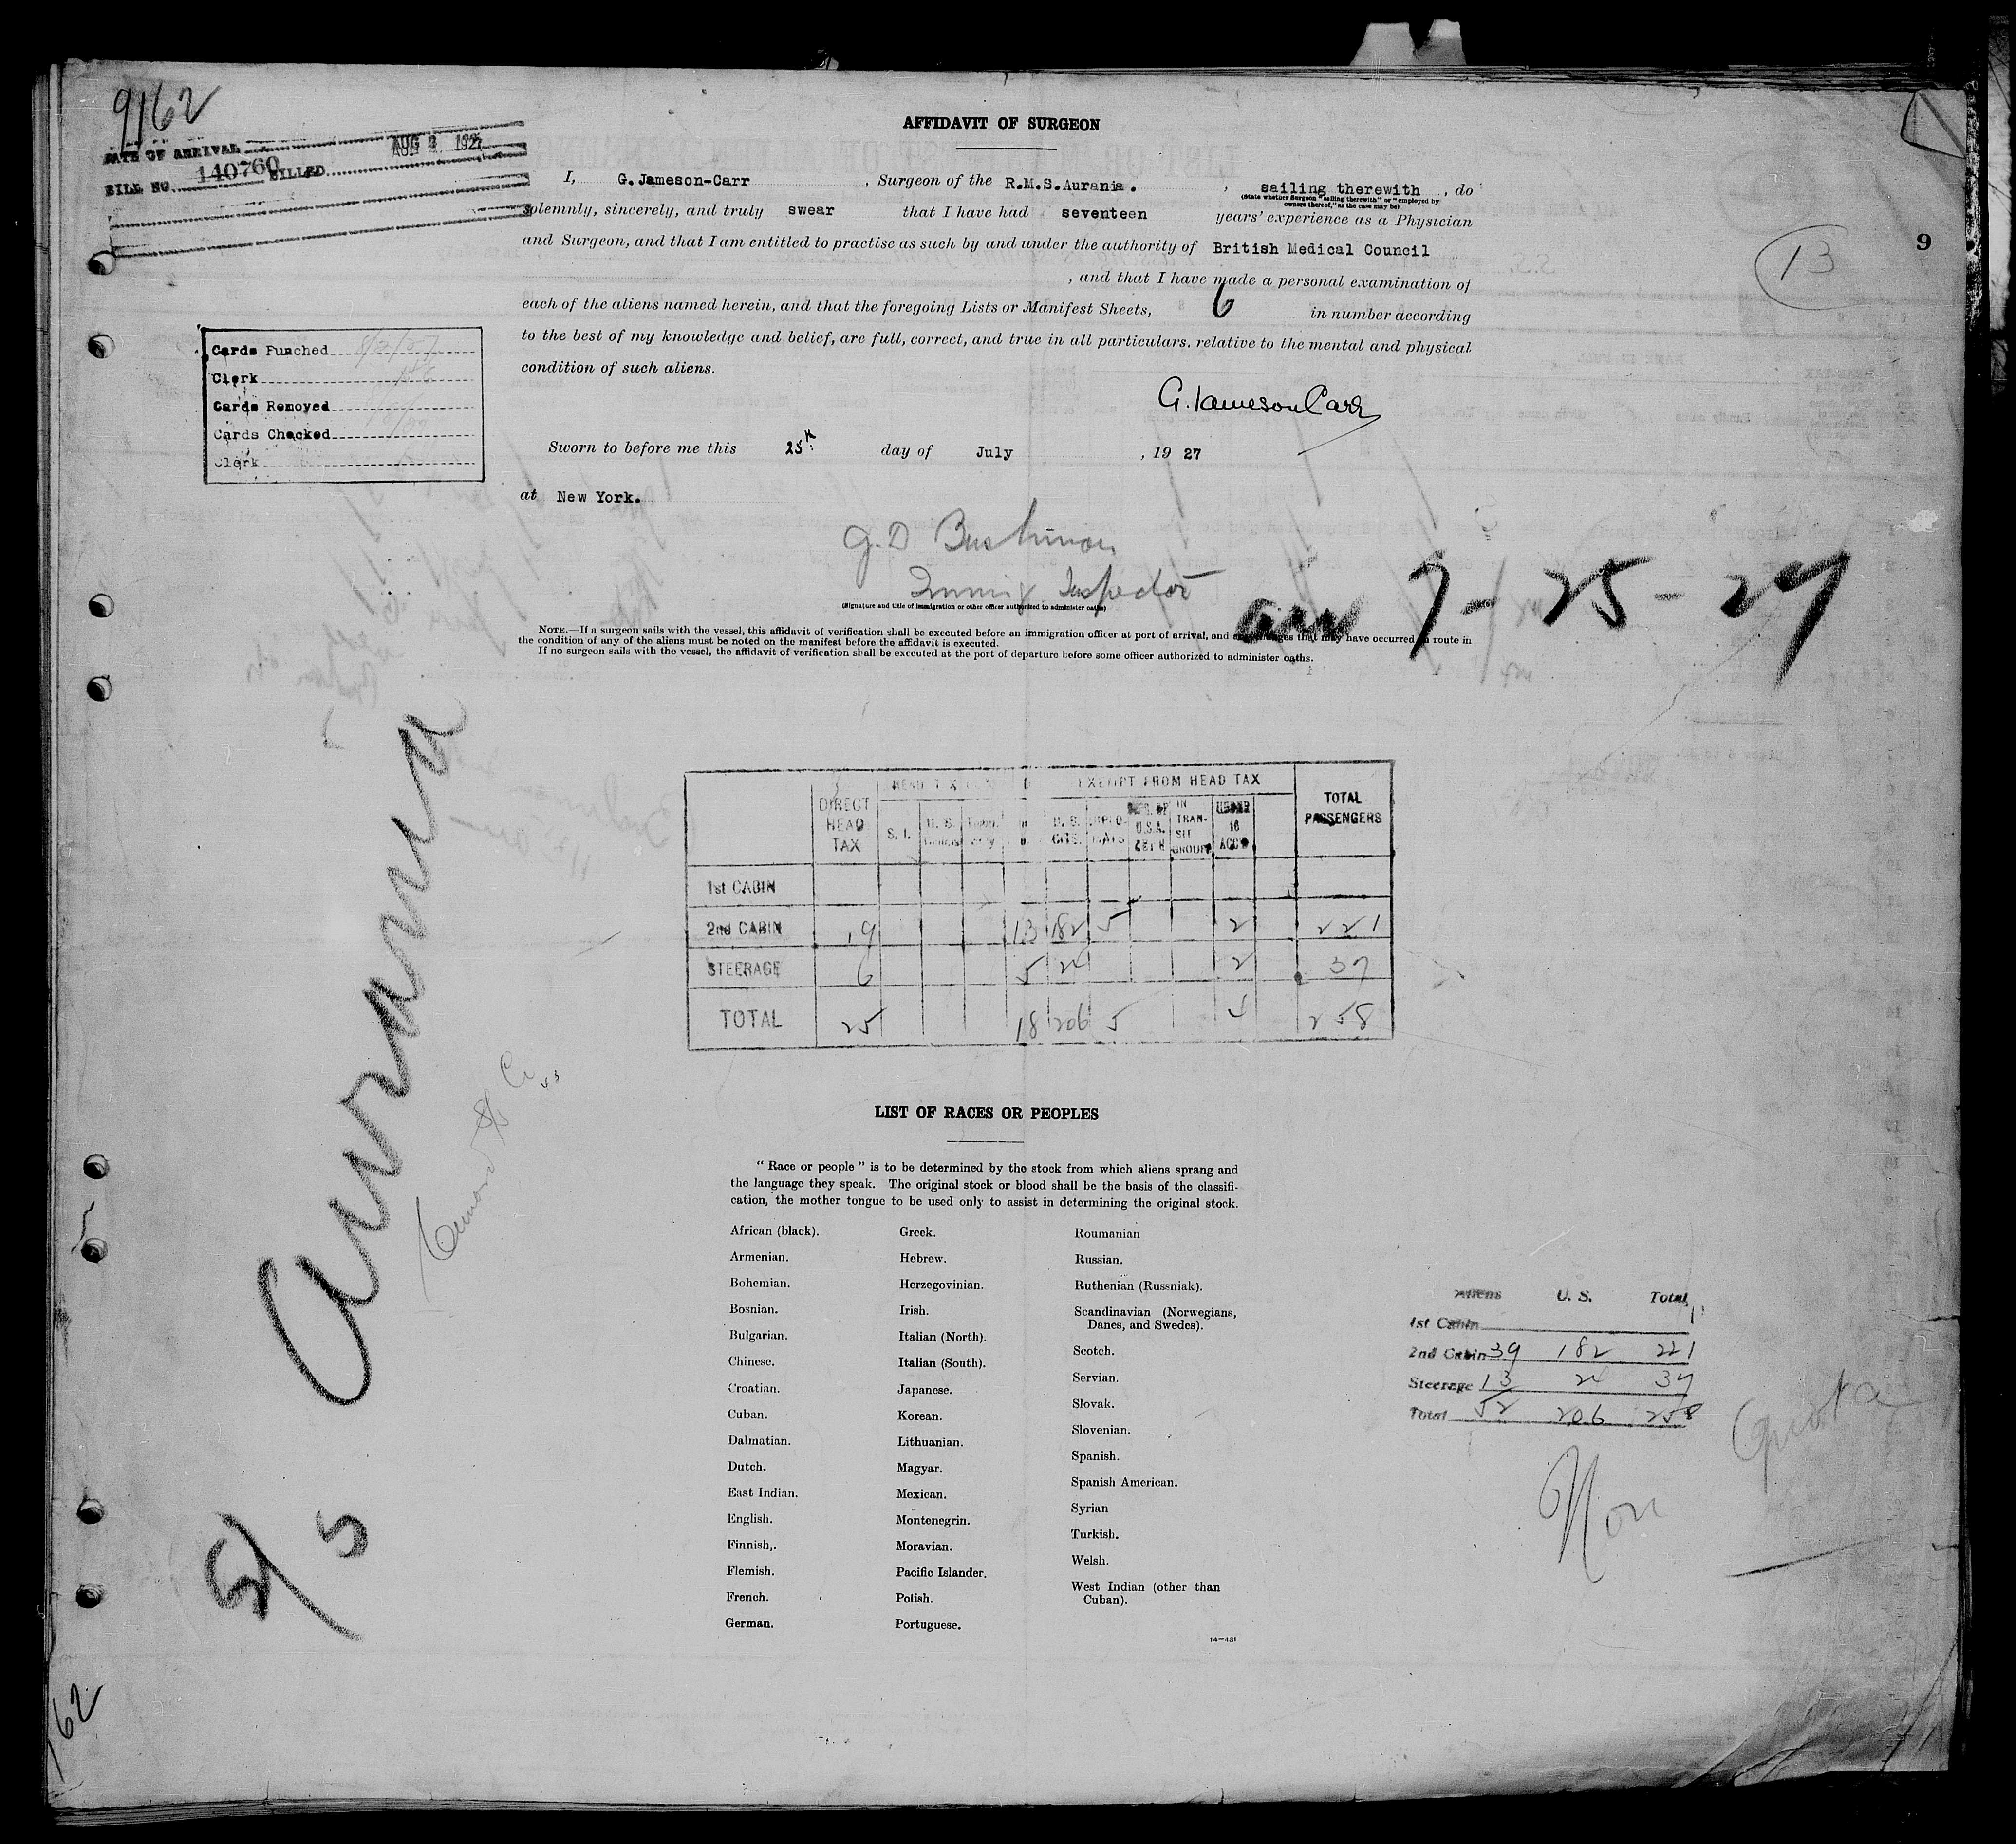 9162
DATE OF ARRIVAL AUG 2 1927
BILL NO. 140760 BILLED
AFFIDAVIT OF SURGEON
I, G. Jameson-Carr , Surgeon of the R.M.S.Aurania. , sailing therewith , do
(State whether Surgeon "sailing therewith" or "employed by
owners thereof," as the case may be)
solemnly, sincerely, and truly swear that I have had seventeen years' experience as a Physician
and Surgeon, and that I am entitled to practise as such by and under the authority of British Medical Council
, and that I have made a personal examination of
each of the aliens named herein, and that the foregoing Lists or Manifest Sheets, 6 in number according
to the best of my knowledge and belief, are full, correct, and true in all particulars. relative to the mental and physical
condition of such aliens.
9
13
Cards Punched
Clerk
Cards Removed
Cards Checked
Clerk
G. Jameson Carr
Sworn to before me this 25th day of July , 19 27
at New York.
Immig Inspector
(Signature and title of immigration or other officer authorized to administer oaths)
7-25-27
NOTE.—If a surgeon sails with the vessel, this affidavit of verification shall be executed before an immigration officer at port of arrival, and changes that may have occurred route in
the condition of any of the aliens must be noted on the manifest before the affidavit is executed.
If no surgeon sails with the vessel, the affidavit of verification shall be executed at the port of departure before some officer authorized to administer oaths.
HEAD TAX EXEMPT FROM HEAD TAX
DIRECT HEAD TAX S. I. U. S. U. S. CITS. DIPLO- MATS U.S.A. IN TRAN- SIT GROUP UNDER 16 ACC'D TOTAL PASSENGERS
1st CABIN
2nd CABIN 19 13 182 5 2 221
STEERAGE 6 5 24 2 37
TOTAL 25 18 206 5 4 258
S/S Aurania
Cunard SS Co
LIST OF RACES OR PEOPLES
" Race or people " is to be determined by the stock from which aliens sprang and
the language they speak. The original stock or blood shall be the basis of the classifi-
cation, the mother tongue to be used only to assist in determining the original stock.
African (black).
Armenian.
Bohemian.
Bosnian.
Bulgarian.
Chinese.
Croatian.
Cuban.
Dalmatian.
Dutch.
East Indian.
English.
Finnish,.
Flemish.
French.
German.
Greek.
Hebrew.
Herzegovinian.
Irish.
Italian (North).
Italian (South).
Japanese.
Korean.
Lithuanian.
Magyar.
Mexican.
Montenegrin.
Moravian.
Pacific Islander.
Polish.
Portuguese.
Roumanian
Russian.
Ruthenian (Russniak).
Scandinavian (Norwegians,
Danes, and Swedes).
Scotch.
Servian.
Slovak.
Slovenian.
Spanish.
Spanish American.
Syrian
Turkish.
Welsh.
West Indian (other than
Cuban).
14—431
Aliens U. S. Total
1st Cabin
2nd Cabin 39 182 221
Steerage 13 24 37
Total 52 206 258
Non Quota
162